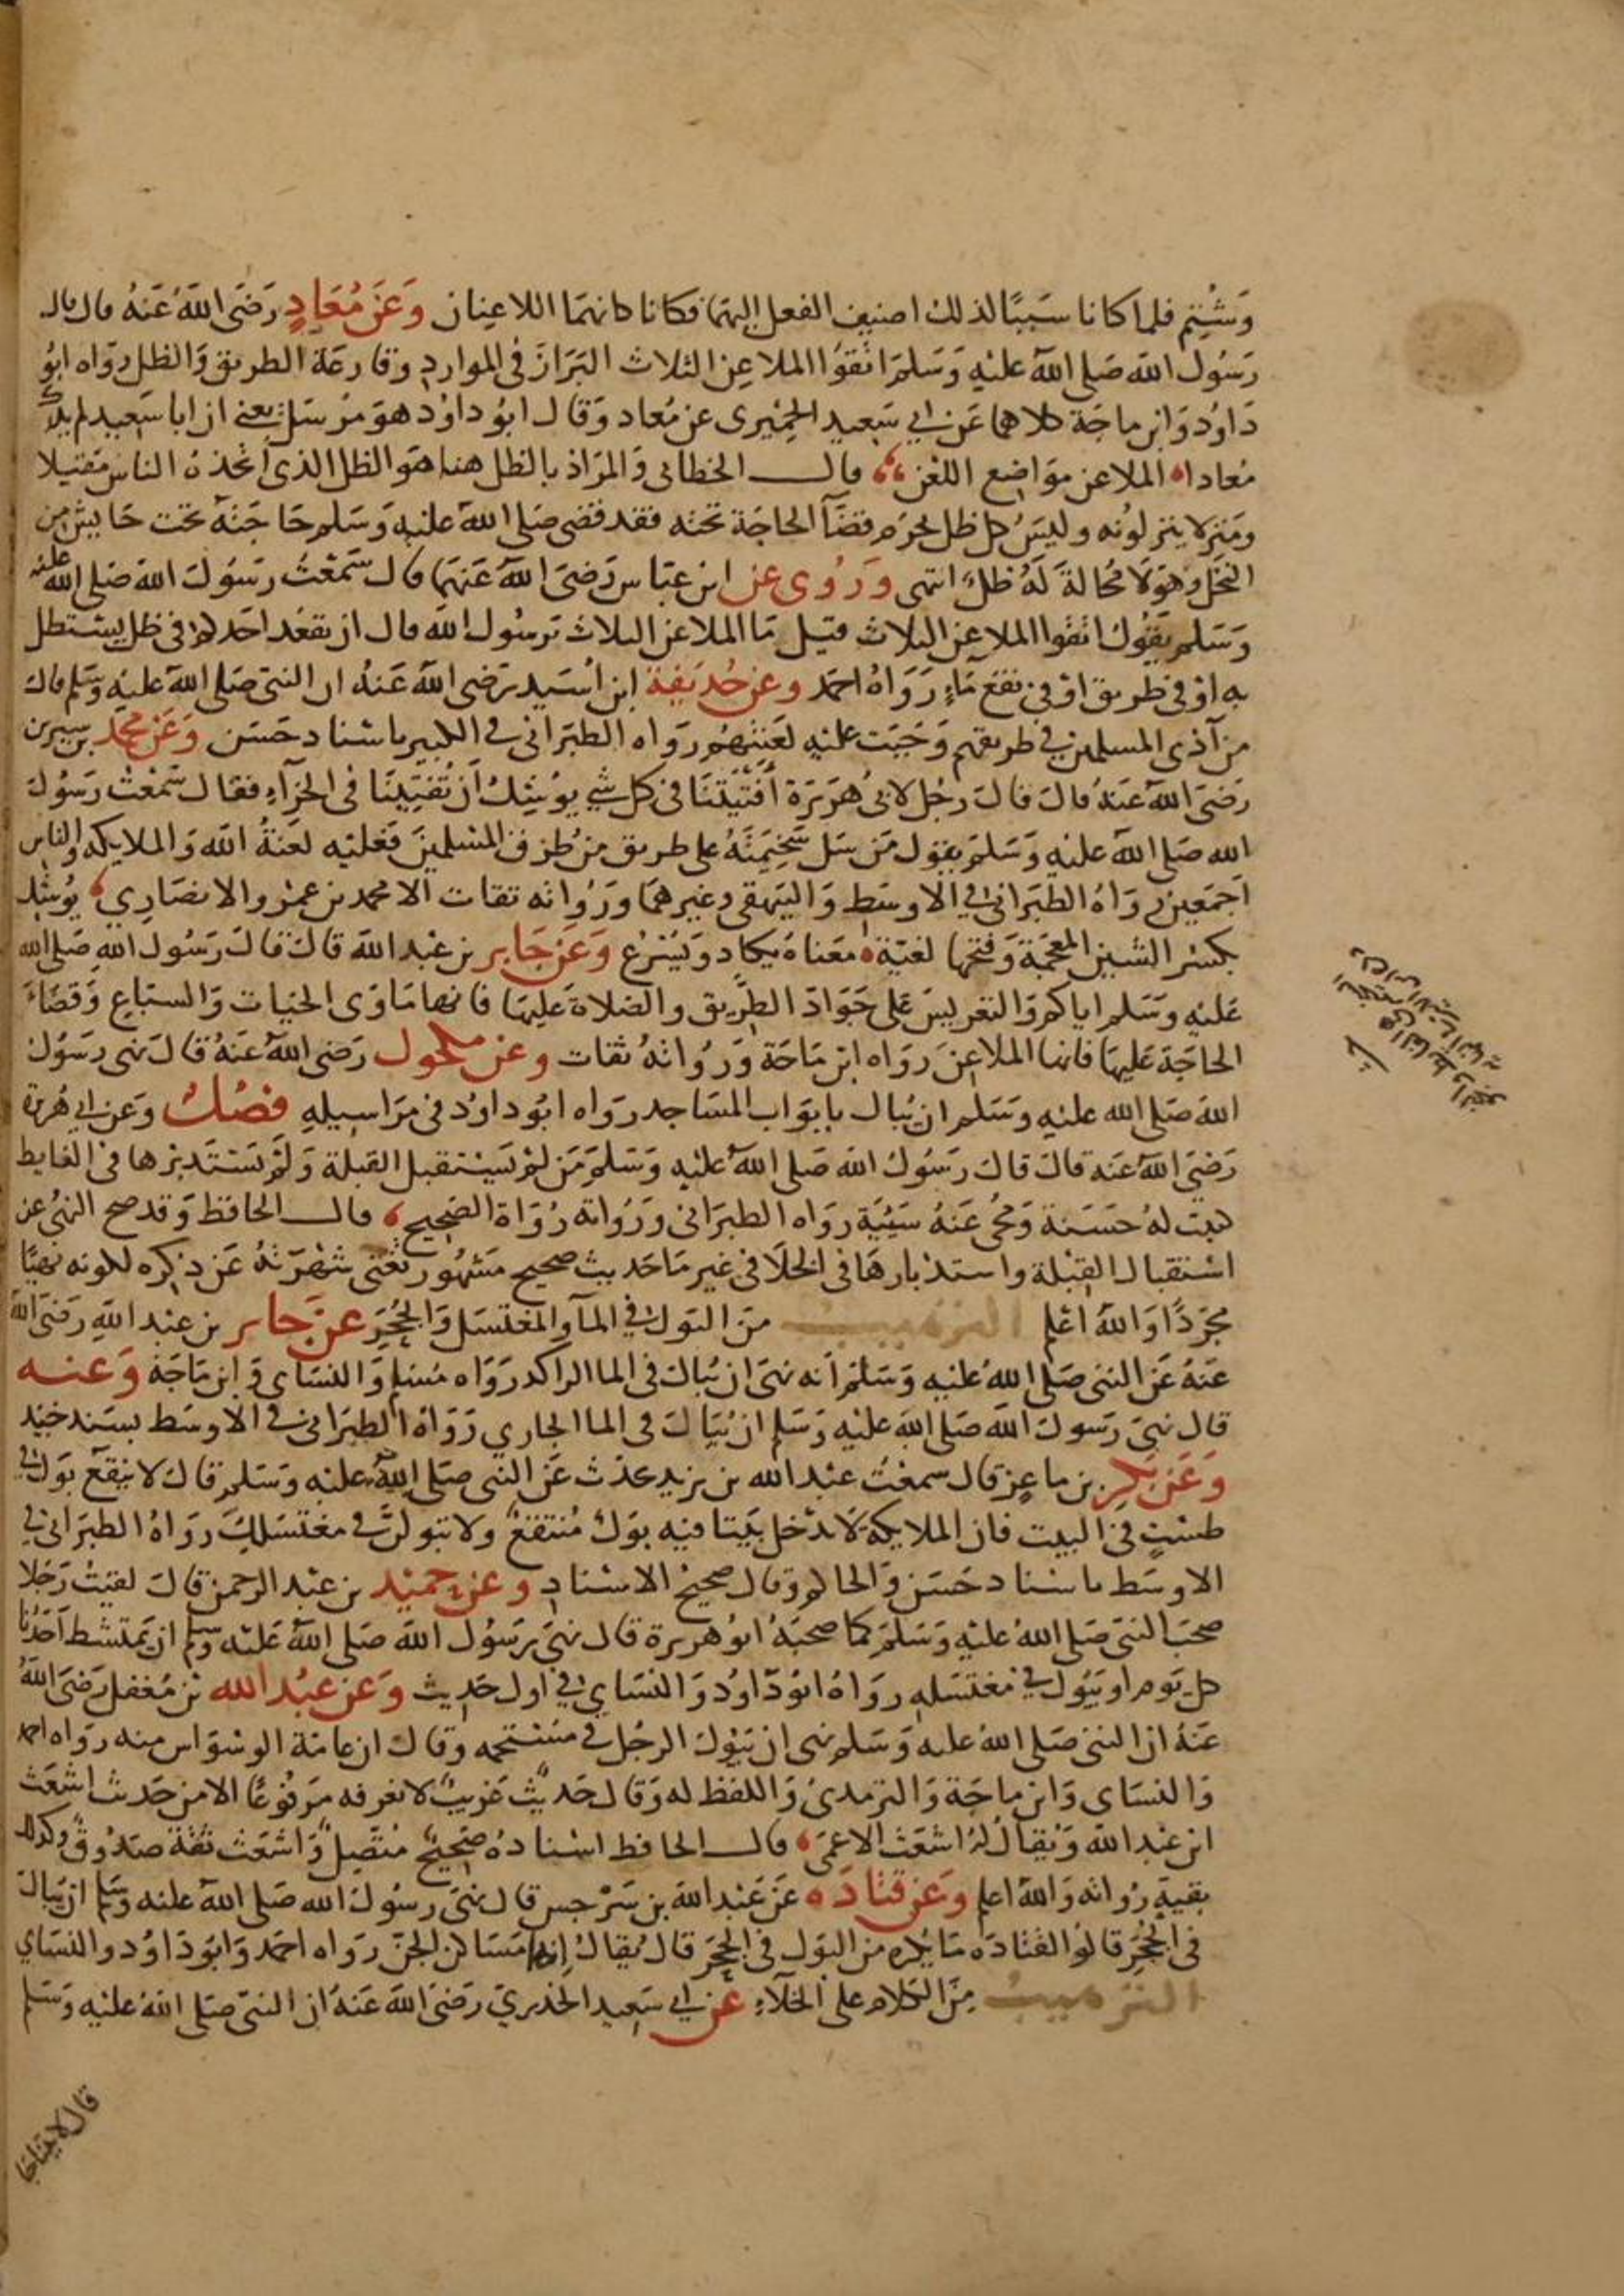 وشتم فلما كانا سببا لذلك اضيف الفعل اليهما فكانا كانهما اللاعنان وعن معاد رضي الله عنه قال قال
رسول الله صلى الله عليه وسلم اتقوا الملاعن الثلاث البراز في الموارد وقارعة الطريق والظل رواه ابو
داود وابن ماجة كلاهما عن ابي سعيد الحميري عن معاد وقال ابو داود هو مرسل يعني ان ابا سعيد لم يدرك
معادا الملاعن مواضع اللعن قال الخطابي والمراد بالظل هنا هو الظل الذي اتخذه الناس مقيلا
ومنزلا ينزلونه وليس كل ظل يحرم قضآ الحاجة تحته فقد قضى صلى الله عليه وسلم حاجته تحت حايش من
النخل وهو لا محالة له ظل انتهى وروى عن ابن عباس رضي الله عنهما قال سمعت رسول الله صلى الله عليه
وسلم يقول اتقوا الملاعن الثلاث قيل ما الملاعن الثلاث يرسول الله قال ان يقعد احدكم في ظل يستظل
به او في طريق او في نقع مآء رواه احمد وعن حديفة ابن اسيد رضي الله عنه ان النبي صلى الله عليه وسلم قال
من آذى المسلمين في طريقهم وجبت عليه لعنتهم رواه الطبراني في الكبير باسناد حسن وعن محمد بن سيرين
رضي الله عنه قال قال رجل لابي هريرة أفتيتنا في كل شي يوشك أن تفتينا في الخرآء فقال سمعت رسول
الله صلى الله عليه وسلم يقول من سل سخيمته على طريق من طرق المسلمين فعليه لعنة الله والملايكه والناس
اجمعين رواه الطبراني في الاوسط والبيهقي وغيرهما ورواته تقات الا محمد بن عمرو الانصاري يوشك
بكسر الشين المعجمة وفتحها لغية معناه يكاد ويسرع وعن جابر بن عبد الله قال قال رسول الله صلى الله
عليه وسلم اياكم والتعريس على جواد الطريق والصلاة عليها فانها ماوى الحيات والسباع وقضاء
الحاجة عليها فانها الملاعن رواه ابن ماجة ورواته ثقات وعن مكحول رضي الله عنه قال نهى رسول
الله صلى الله عليه وسلم ان يبال بابواب المساجد رواه ابو داود في مراسيله فصل وعن ابي هريرة
رضي الله عنه قال قال رسول الله صلى الله عليه وسلم من لم يستقبل القبلة ولم يستدبرها في الغايط
كتبت له حسنة ومحي عنه سيئة رواه الطبراني ورواته رواة الصحيح قال الحافظ وقد صح النهي عن
استقبال القبلة واستدبارها في الخلا في غير ما حديث صحيح مشهور تغني شهرته عن ذكره لكونه نهيا
مجردا والله اعلم الترهيب من البول في المآ والمغتسل والجحر عن جابر بن عبد الله رضي الله
عنه عن النبي صلى الله عليه وسلم أنه نهى ان يبال في الما الراكد رواه مسلم والنساي وابن ماجة وعنه
قال نهى رسول الله صلى الله عليه وسلم ان يبال في الما الجاري رواه الطبراني في الاوسط بسند جيد
وعن بكر بن ماعز قال سمعت عبد الله بن يزيد يحدث عن النبي صلى الله عليه وسلم قال لا ينقع بول في
طست في البيت فان الملايكة لا تدخل بيتا فيه بول منتقع ولا تبولن في مغتسلك رواه الطبراني في
الاوسط باسناد حسن والحاكم وقال صحيح الاسناد وعن حميد بن عبد الرحمن قال لقيت رجلا
صحب النبي صلى الله عليه وسلم كما صحبه ابو هريرة قال نهى رسول الله صلى الله عليه وسلم ان يمتشط احدنا
كل يوم او يبول في مغتسله رواه ابو داود والنساي في اول حديث وعن عبد الله بن مغفل رضي الله
عنه ان النبي صلى الله عليه وسلم نهى ان يبول الرجل في مستحمه وقال ان عامة الوسواس منه رواه احمد
والنساي وابن ماجة والترمدي واللفظ له وقال حديث غريب لا نعرفه مرفوعا الا من حديث اشعث
ابن عبد الله ويقال له اشعث الاعمى قال الحافظ اسناده صحيح متصل واشعث ثقة صدوق وكذلك
بقية رواته والله اعلم وعن قتاده عن عبد الله بن سرجس قال نهى رسول الله صلى الله عليه وسلم ان يبال
في الجحر قالوا لقتاده ما يكره من البول في الجحر قال يقال إنها مساكن الجن رواه احمد وابو داود والنساي
الترهيب من الكلام على الخلآء عن ابي سعيد الخدري رضي الله عنه ان النبي صلى الله عليه وسلم
قال لا يتناجا